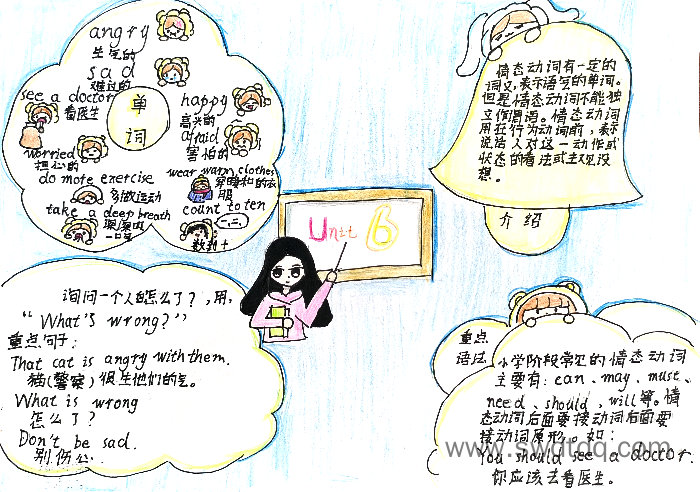 angry
生气的
sad
难过的
see a doctor
看医生
单词
happy
高兴的
afraid
害怕的
worried
担心的
wear warm clothes
穿暖和的衣服
do more exercise
多做运动
take a deep breath
深深吸一口气
count to ten
一,二,
数到十
Unit 6
情态动词有一定的
词义,表示语气的单词。
但是情态动词不能独
立作谓语。情态动词
用在行为动词前,表示
说话人对这一动作或
状态的看法或主观设
想。
介绍
询问一个人怎么了?,用,
"What's wrong?"
重点句子:
That cat is angry with them.
猫(警察)很生他们的气。
What is wrong
怎么了?
Don't be sad.
别伤心.
重点
语法
小学阶段常见的情态动词
主要有:can、may、must、
need、should、will等。情
态动词后面要接动词后面要
接动词原形。如:
You should see a doctor.
你应该去看医生。
www.swdtdq.com